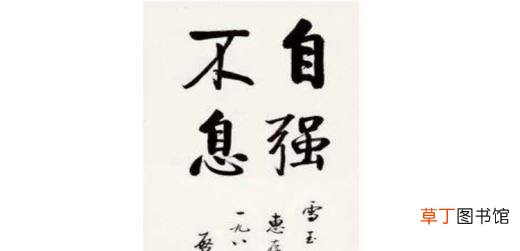 自强
不息
雪玉
惠存
一九八
启
草丁图书馆